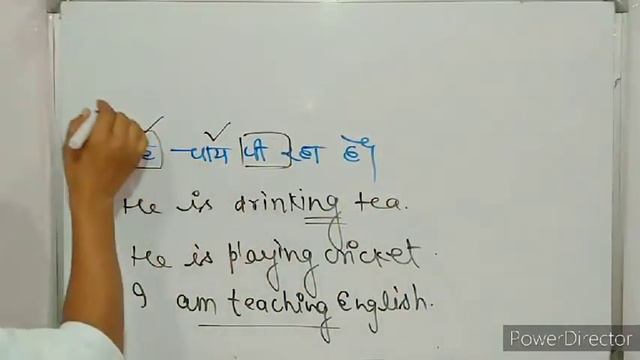 चाय पी रहा है।
He is drinking tea.
He is playing cricket.
I am teaching English.
PowerDirector